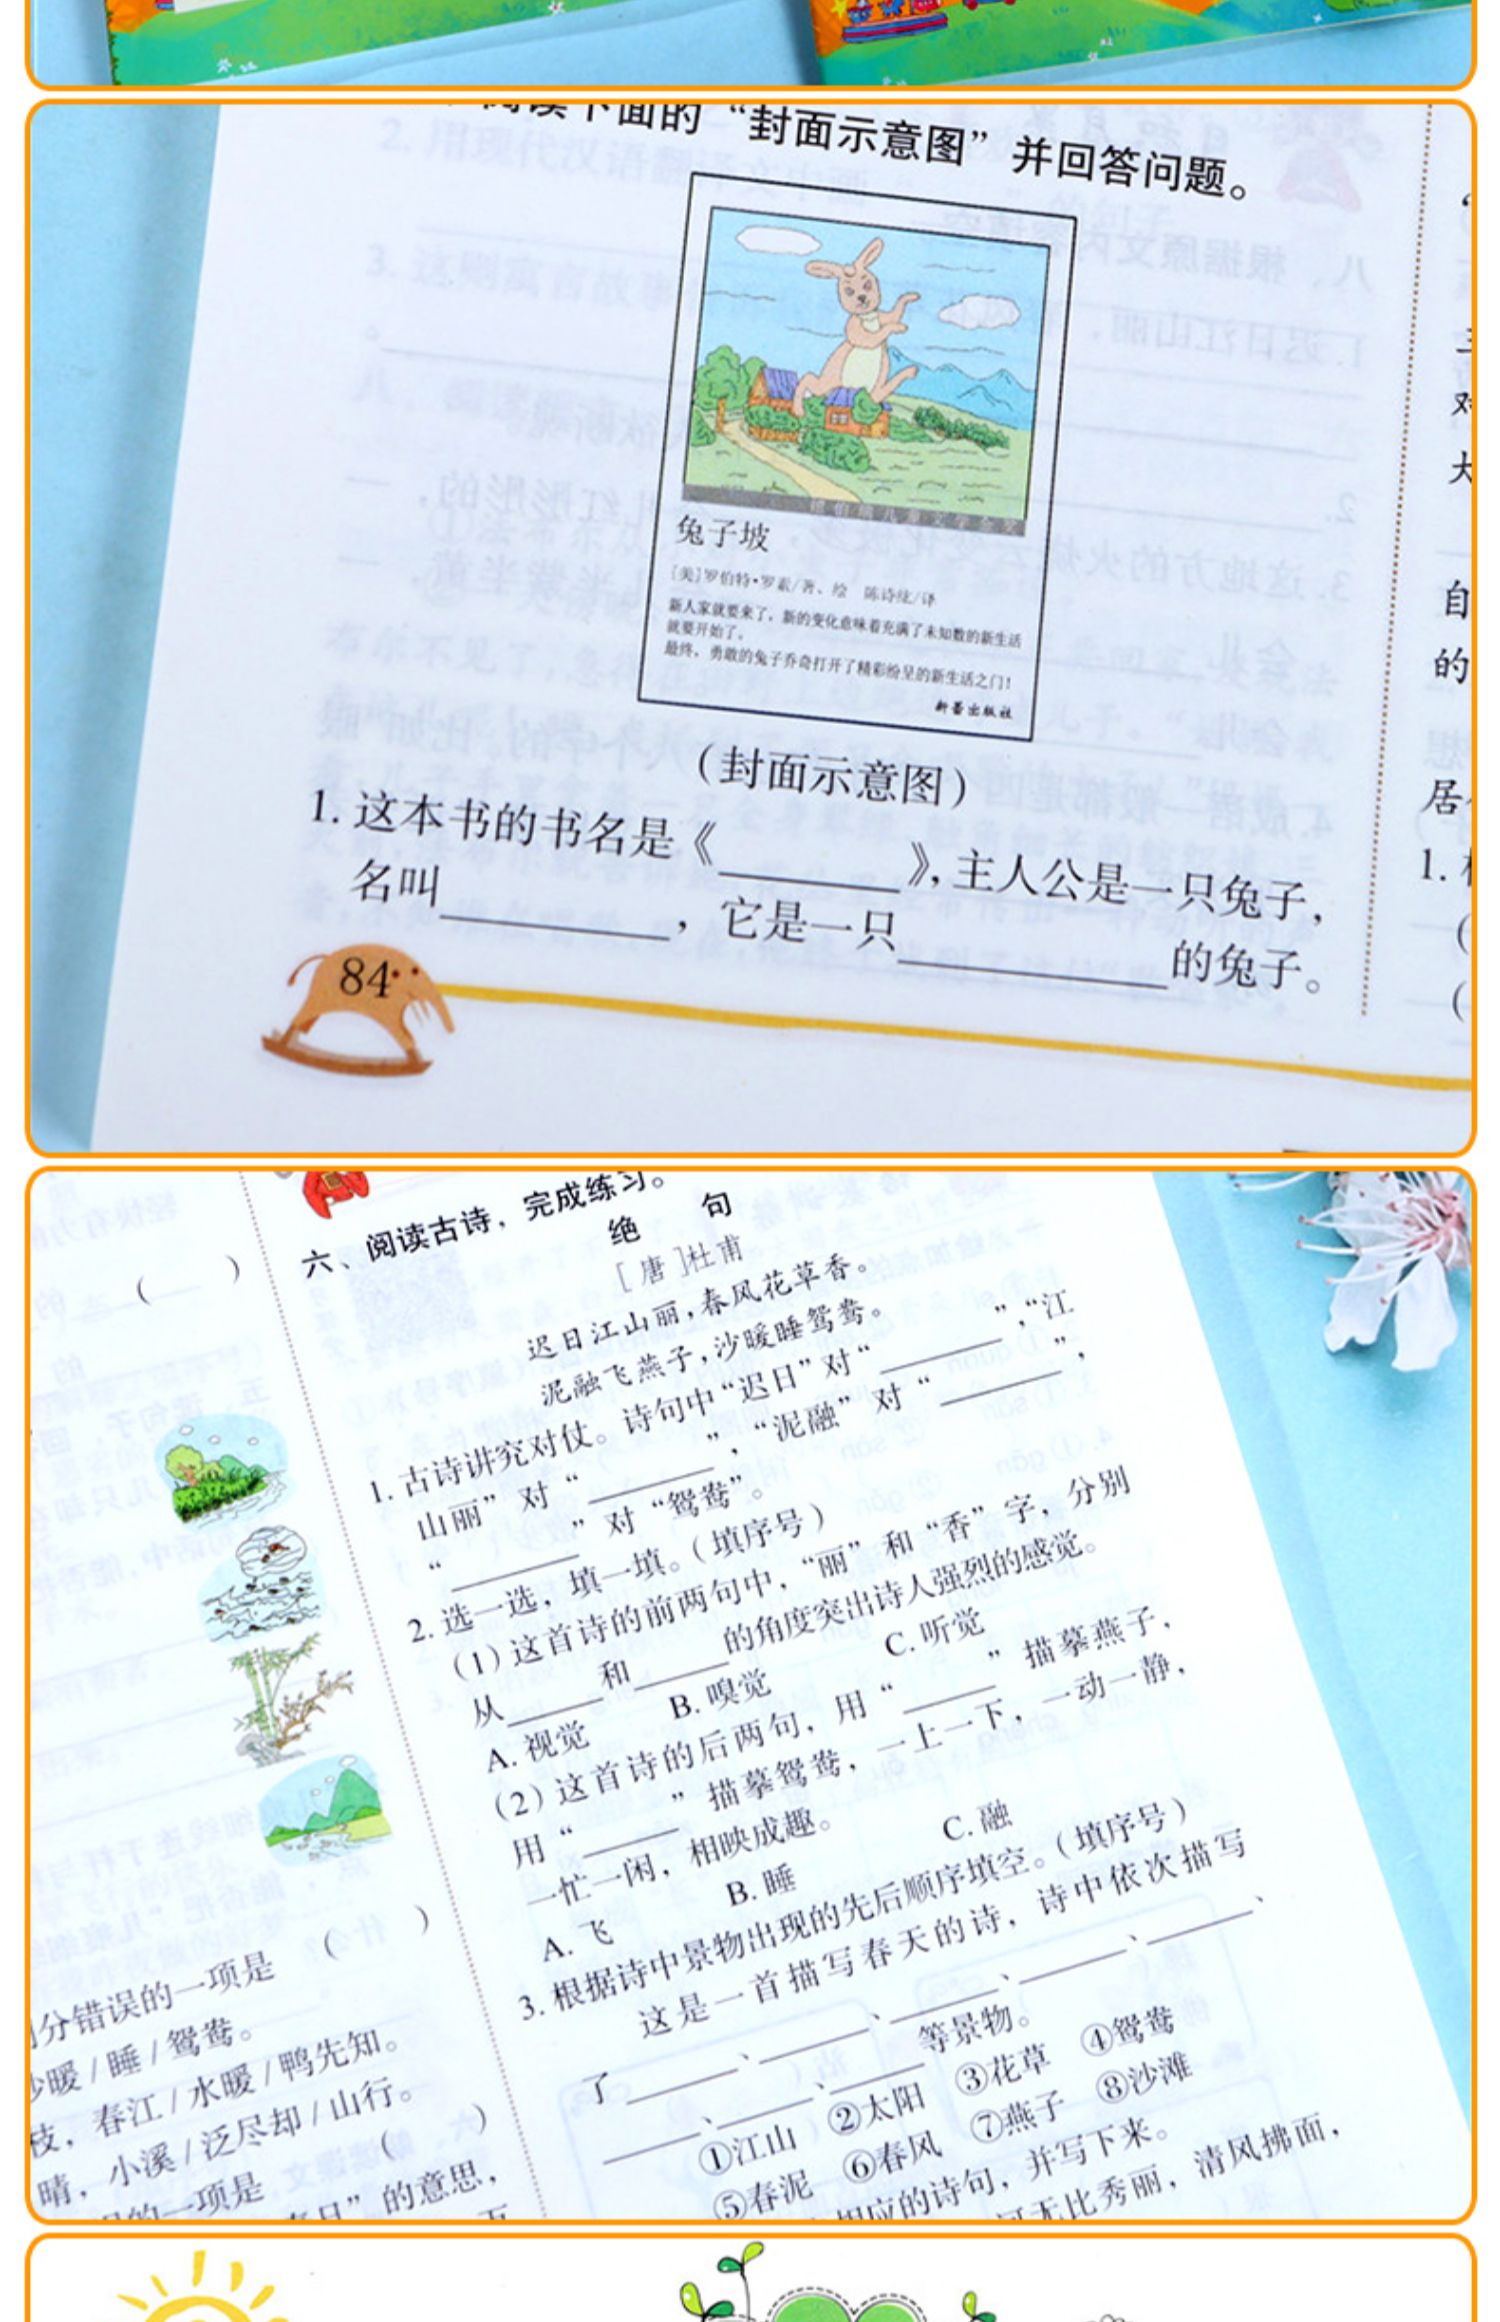 阅读下面的“封面示意图”并回答问题。
兔子坡
[美]罗伯特·罗素/著、绘 陈诗纮/译
新人家就要来了，新的变化意味着充满了未知数的新生活
就要开始了。
最终，勇敢的兔子乔奇打开了精彩纷呈的新生活之门！
新蕾出版社
（封面示意图）
1. 这本书的书名是《________》，主人公是一只兔子，
名叫________，它是一只________的兔子。
84
六、阅读古诗，完成练习。
绝 句
［唐］杜甫
迟日江山丽，春风花草香。
泥融飞燕子，沙暖睡鸳鸯。
1. 古诗讲究对仗。诗句中“迟日”对“________”，“江
山丽”对“________”，“泥融”对“________”，
“________”对“鸳鸯”。
2. 选一选，填一填。（填序号）
（1）这首诗的前两句中，“丽”和“香”字，分别
从____和____的角度突出诗人强烈的感觉。
A. 视觉 B. 嗅觉 C. 听觉
（2）这首诗的后两句，用“____”描摹燕子，
用“____”描摹鸳鸯，一上一下，一动一静，
一忙一闲，相映成趣。
A. 飞 B. 睡 C. 融
3. 根据诗中景物出现的先后顺序填空。（填序号）
这是一首描写春天的诗，诗中依次描写
了____、____、____、____、____、
____、____、____等景物。
①江山 ②太阳 ③花草 ④鸳鸯
⑤春泥 ⑥春风 ⑦燕子 ⑧沙滩
相应的诗句，并写下来。
河无比秀丽，清风拂面，
（ ）
分错误的一项是（ ）
沙暖/睡/鸳鸯。
枝，春江/水暖/鸭先知。
晴，小溪/泛尽却/山行。
的一项是（ ）
日”的意思，